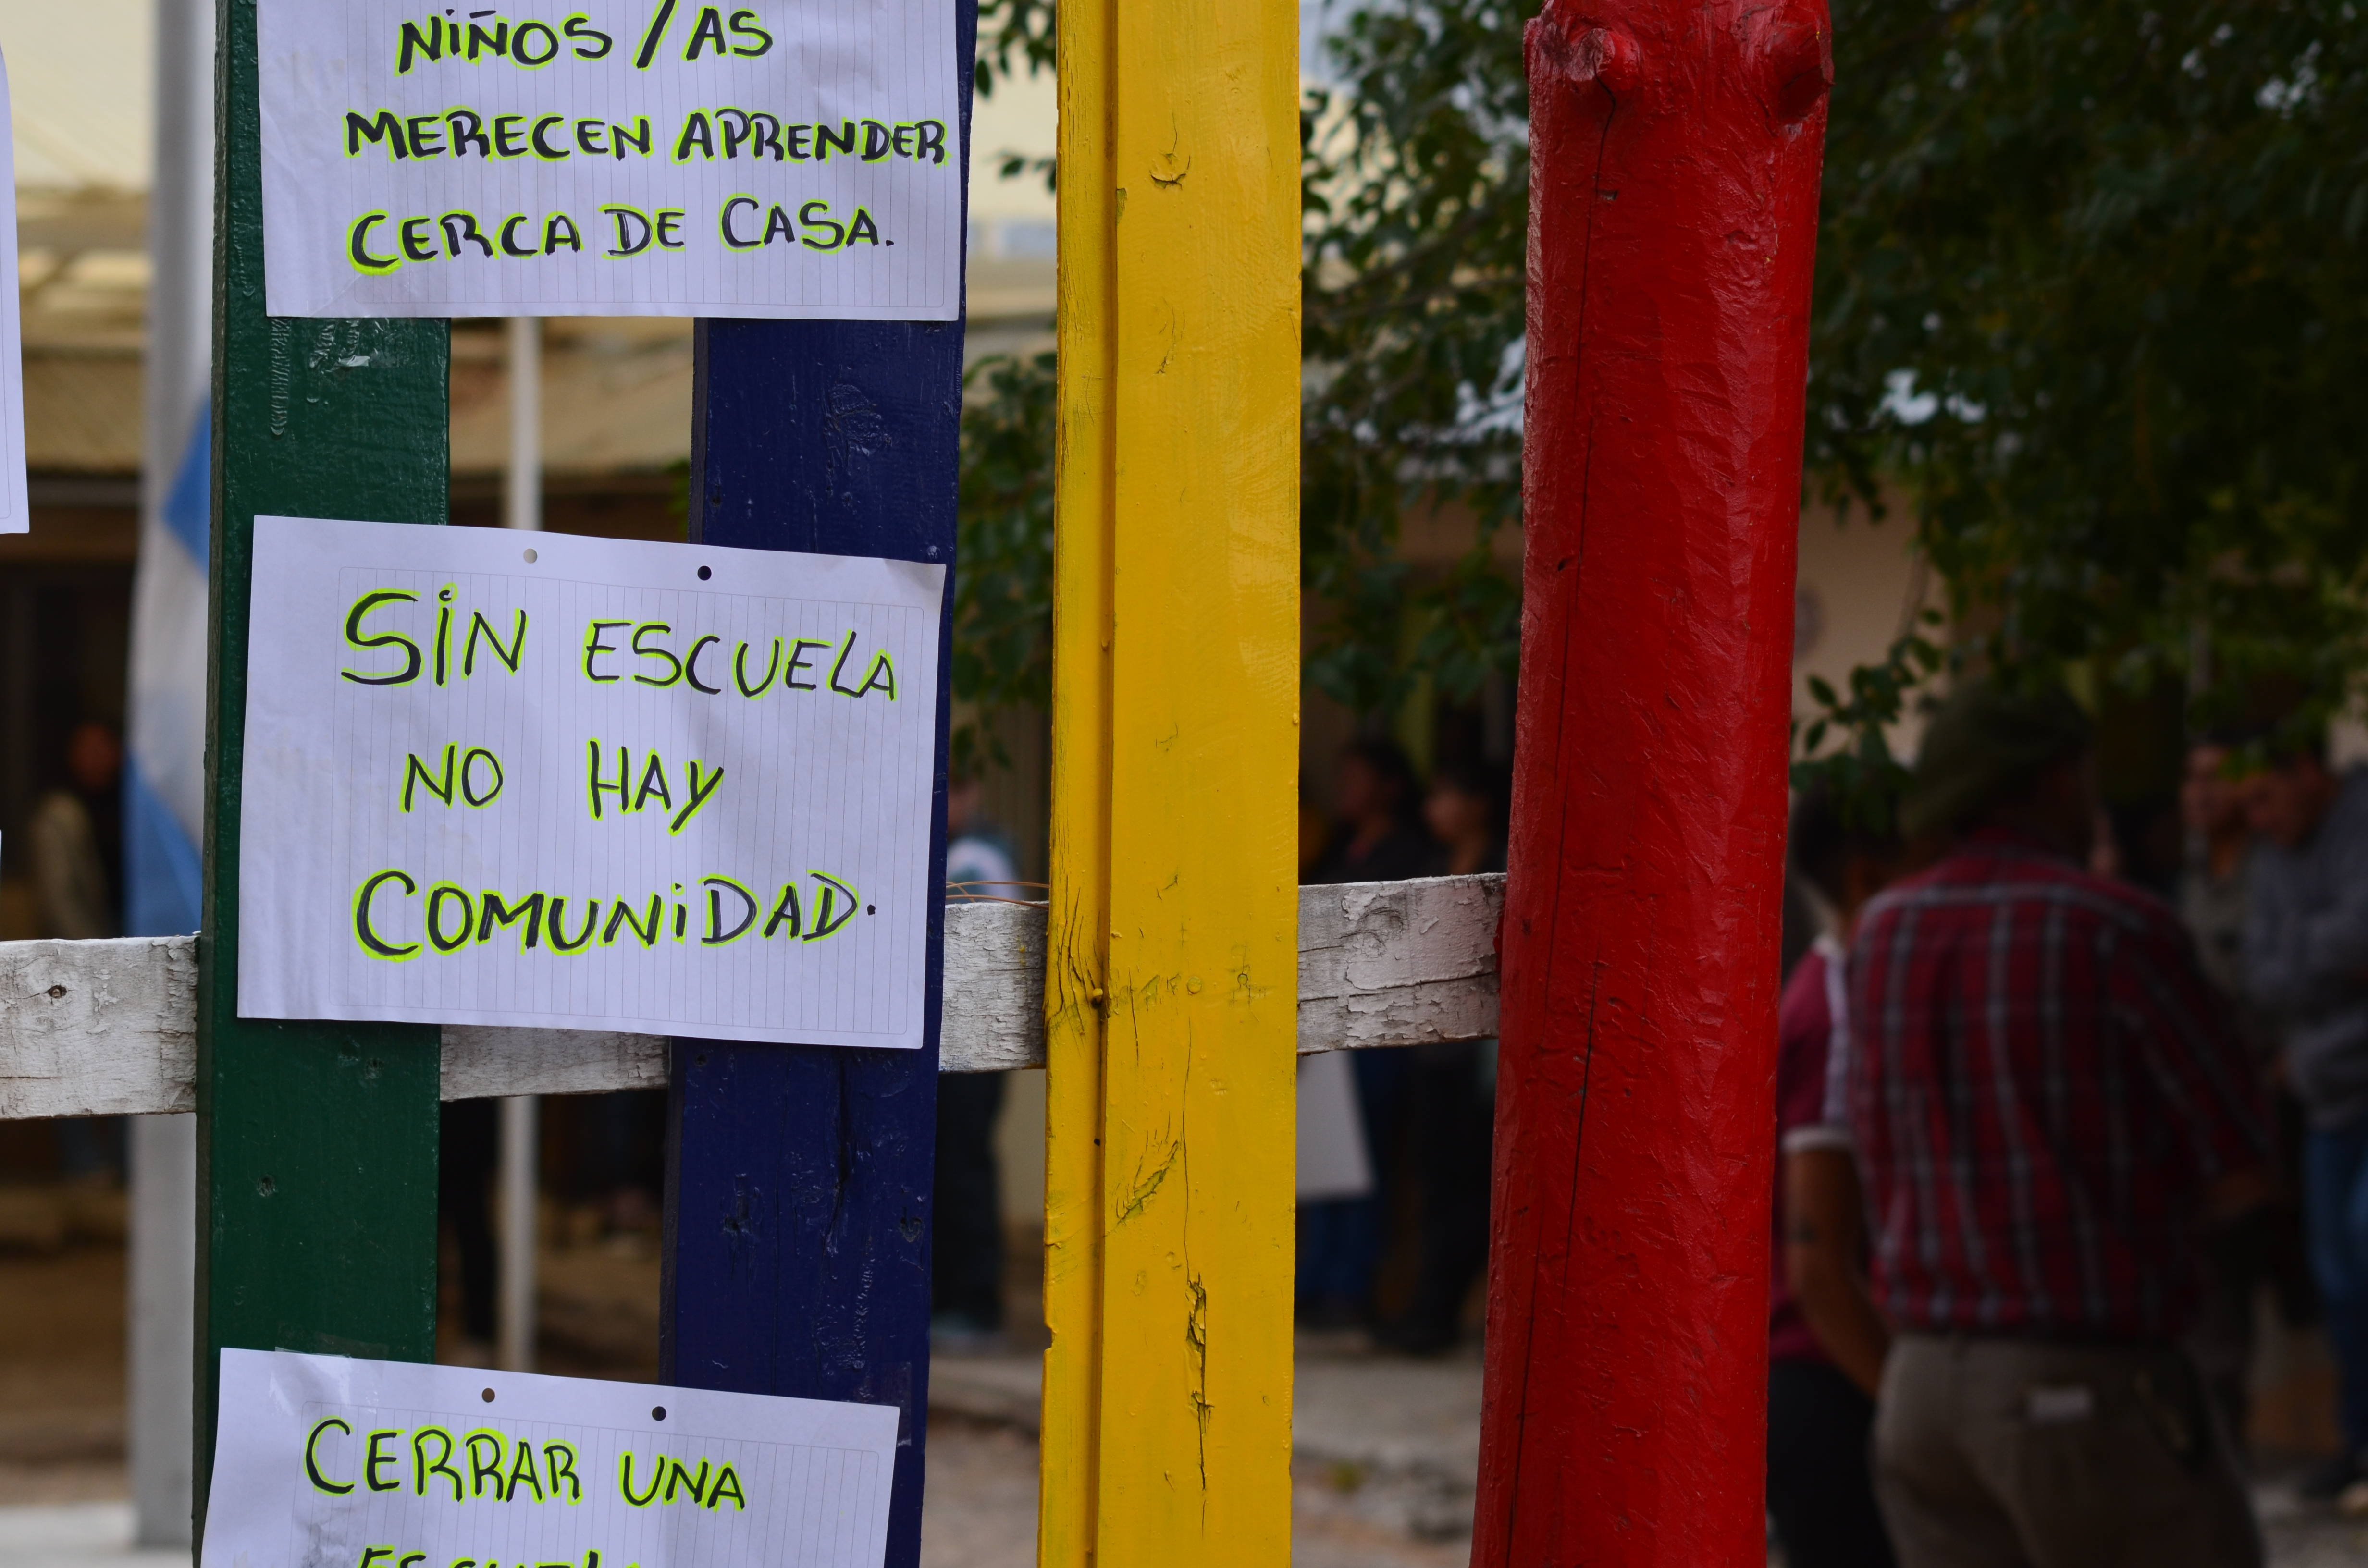 NIÑOS/AS
MERECEN APRENDER
CERCA DE CASA.
SIN ESCUELA
NO HAY
COMUNIDAD.
CERRAR UNA
ESCUELA